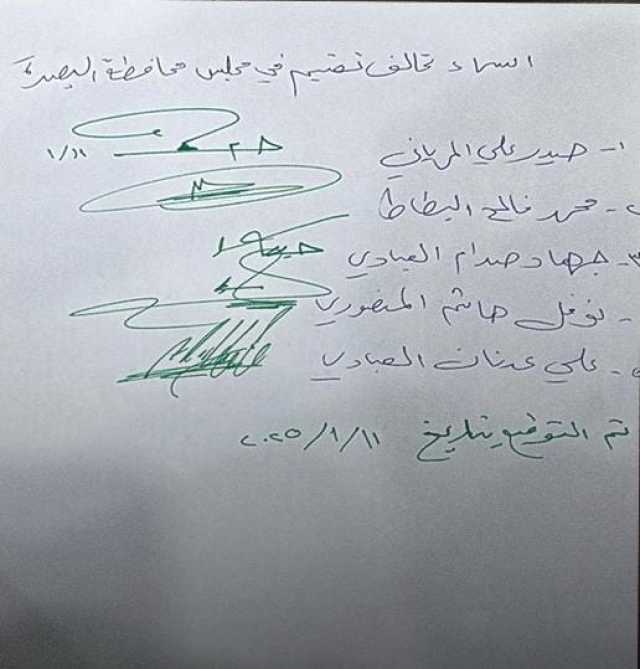 اسماء تحالف تصميم في مجلس محافظة البصرة
١- حيدر علي المرياني ١/١١
٢- محمد فالح البطاط
٣- جهاد صدام العبادي
- نوفل هاشم المنصوري
٥- علي عدنان العبادي
تم التوقيع بتاريخ ٢٠٢٥/١/١١